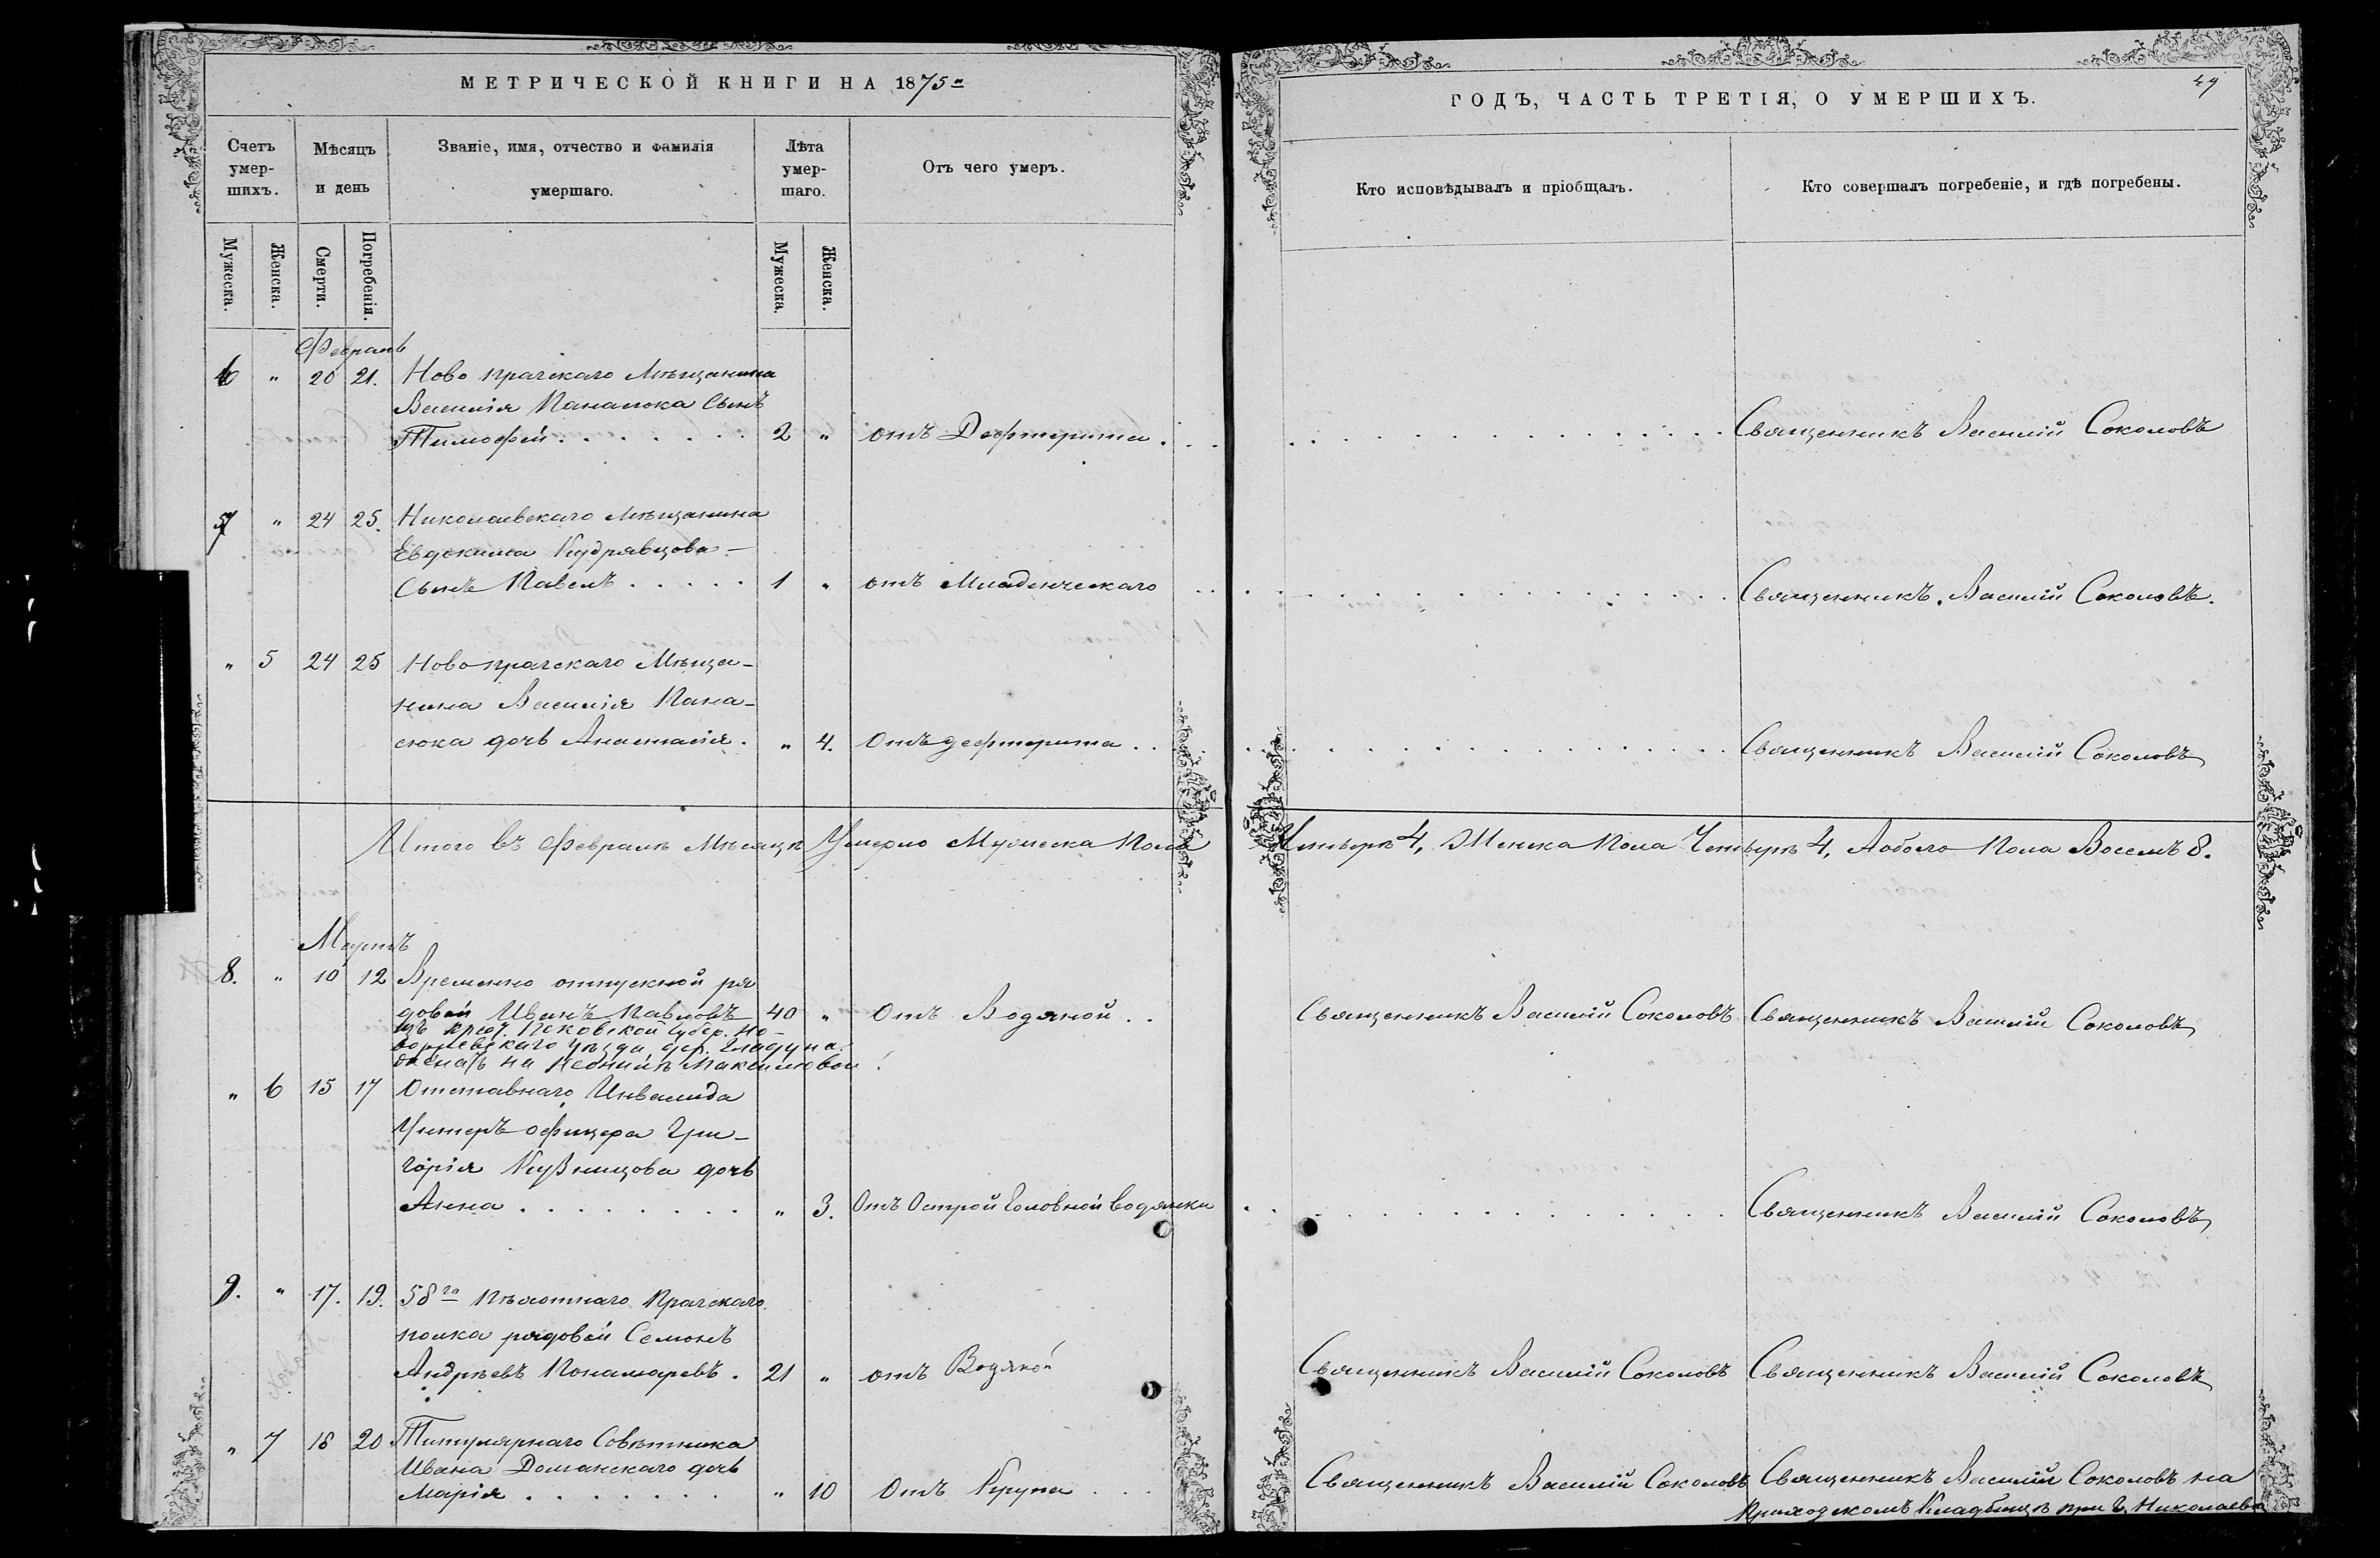 МЕТРИЧЕСКОЙ КНИГИ НА 1875й
ГОДЪ, ЧАСТЬ ТРЕТІЯ, О УМЕРШИХЪ.
49
Счетъ умер-шихъ.
Мѣсяцъ и день
Званіе, имя, отчество и фамилія умершаго.
Лѣта умер-шаго.
Отъ чего умеръ.
Кто исповѣдывалъ и пріобщалъ.
Кто совершалъ погребеніе, и гдѣ погребены.
Мужеска.
Женска.
Смерти.
Погребенія.
Мужеска.
Женска.
Февраль
6 " 20 21. Ново прагскаго Мѣщанина
Василія Панасюка Сынъ
Тимофей . . . . . . . 2 " отъ Дефтерита . . . Священникъ Василій Соколовъ
7 " 24 25. Николаевскаго мѣщанина
Евдокима Кудрявцова
Сынъ Павелъ . . . . . 1 " отъ Младенческаго . . . Священникъ Василій Соколовъ.
" 5 24 25 Ново прагскаго Мѣща-
нина Василія Пана-
сюка дочь Анастасія . " 4. Отъ дефтерита . . . Священникъ Василій Соколовъ
Итого въ Февралѣ Мѣсяцѣ Умерло Мужеска Пола Четыре 4, Женска Пола Четыре 4, А обоего Пола Восемъ 8.
Мартъ
8. " 10 12 Временно отпускной ря
довой Иванъ Павловъ 40 " Отъ Водяной . . Священникъ Василій Соколовъ Священникъ Василій Соколовъ
изъ крест. Псковской губер. Но-
воржевскаго уѣзда, дер. Гладуна.
женатъ на Неонилѣ Максимовой
" 6 15 17 Отставнаго Инвалида
Унтеръ офицера Гри-
горія Кузнецова дочь
Анна . . . . . . . . " 3. Отъ Острой Головной водянки . . . Священникъ Василій Соколовъ
9. " 17. 19. 58го Пѣхотнаго Прагскаго
полка рядовой Семонъ
Андрѣевъ Понамаревъ . 21 " отъ Водяной Священникъ Василій Соколовъ Священникъ Василій Соколовъ
" 7 18 20 Титулярнаго Совѣтника
Ивана Доманскаго дочь
Марія . . . . . . . " 10 Отъ Крупа . . . Священникъ Василій Соколовъ Священникъ Василій Соколовъ на
Приходскомъ Кладбищѣ при г. Николаевѣ